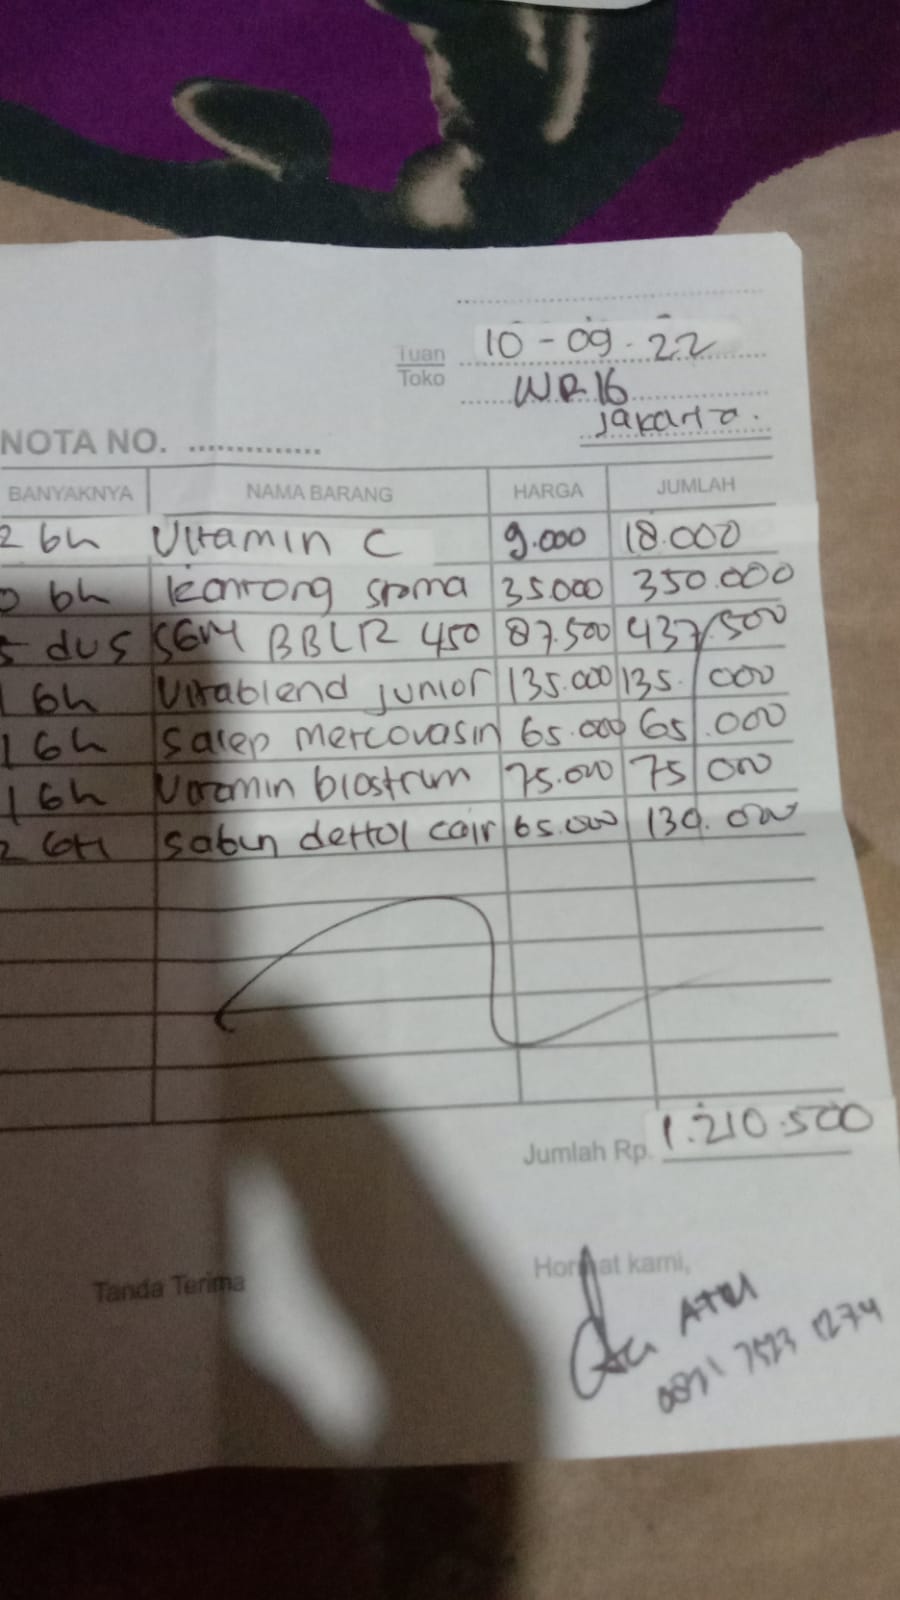 10-09-22
Tuan
Toko
WR 16
Jakarta.
NOTA NO. ..............
BANYAKNYA NAMA BARANG HARGA JUMLAH
2 bh Vitamin C 9.000 18.000
0 bh kantong stoma 35.000 350.000
5 dus SGM BBLR 450 87.500 437.500
1 bh Vitablend junior 135.000 135.000
1 bh Salep mercovasin 65.000 65.000
1 bh Vitamin biostrum 75.000 75.000
2 BH Sabun dettol cair 65.000 130.000
Jumlah Rp. 1.210.500
Tanda Terima Hormat kami,